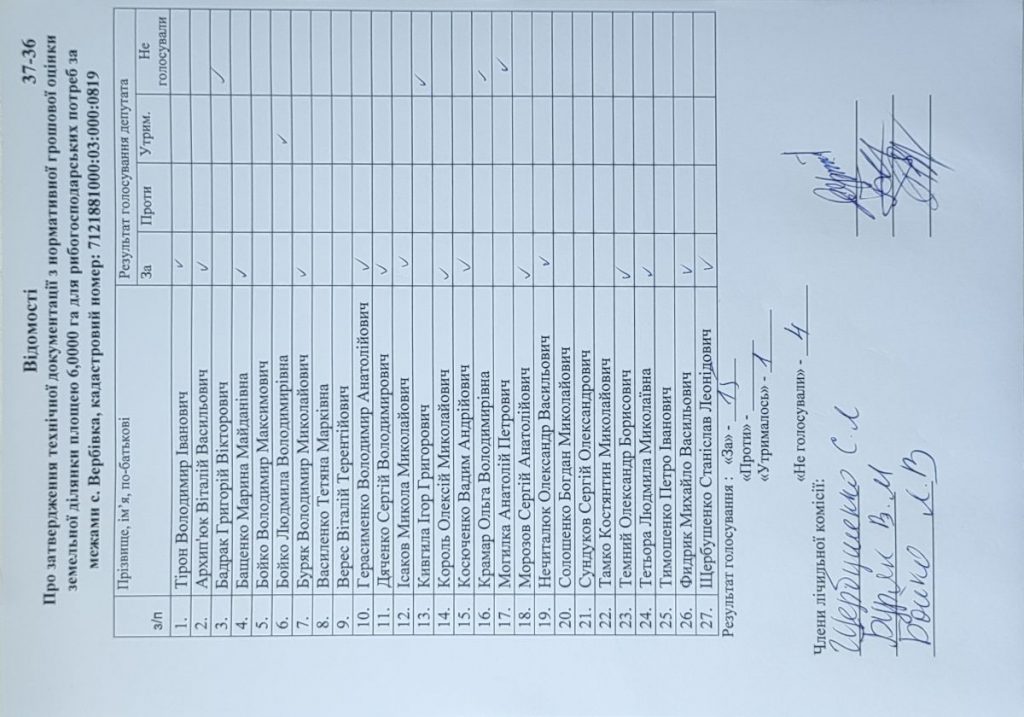 Відомості 37-36
Про затвердження технічної документації з нормативної грошової оцінки
земельної ділянки площею 6,0000 га для рибогосподарських потреб за
межами с. Вербівка, кадастровий номер: 7121881000:03:000:0819
з/п Прізвище, ім’я, по-батькові Результат голосування депутата
За Проти Утрим. Не голосували
1. Тірон Володимир Іванович ✓
2. Архип'юк Віталій Васильович ✓
3. Бадрак Григорій Вікторович ✓
4. Бащенко Марина Майданівна ✓
5. Бойко Володимир Максимович
6. Бойко Людмила Володимирівна ✓
7. Буряк Володимир Миколайович ✓
8. Василенко Тетяна Марківна
9. Верес Віталій Терентійович
10. Герасименко Володимир Анатолійович ✓
11. Дяченко Сергій Володимирович ✓
12. Ісаков Микола Миколайович ✓
13. Кивгила Ігор Григорович ✓
14. Король Олексій Миколайович ✓
15. Косюченко Вадим Андрійович ✓
16. Крамар Ольга Володимирівна ✓
17. Могилка Анатолій Петрович ✓
18. Морозов Сергій Анатолійович ✓
19. Нечиталюк Олександр Васильович ✓
20. Солошенко Богдан Миколайович
21. Сундуков Сергій Олександрович
22. Тамко Костянтин Миколайович
23. Темний Олександр Борисович ✓
24. Тетьора Людмила Миколаївна ✓
25. Тимошенко Петро Іванович
26. Фидрик Михайло Васильович ✓
27. Щербушенко Станіслав Леонідович ✓
Результат голосування : «За» - 15
«Проти» -
«Утрималось» - 1
«Не голосували» - 4
Члени лічильної комісії:
Щербушенко С.Л
Буряк В.М
Бойко Л.В